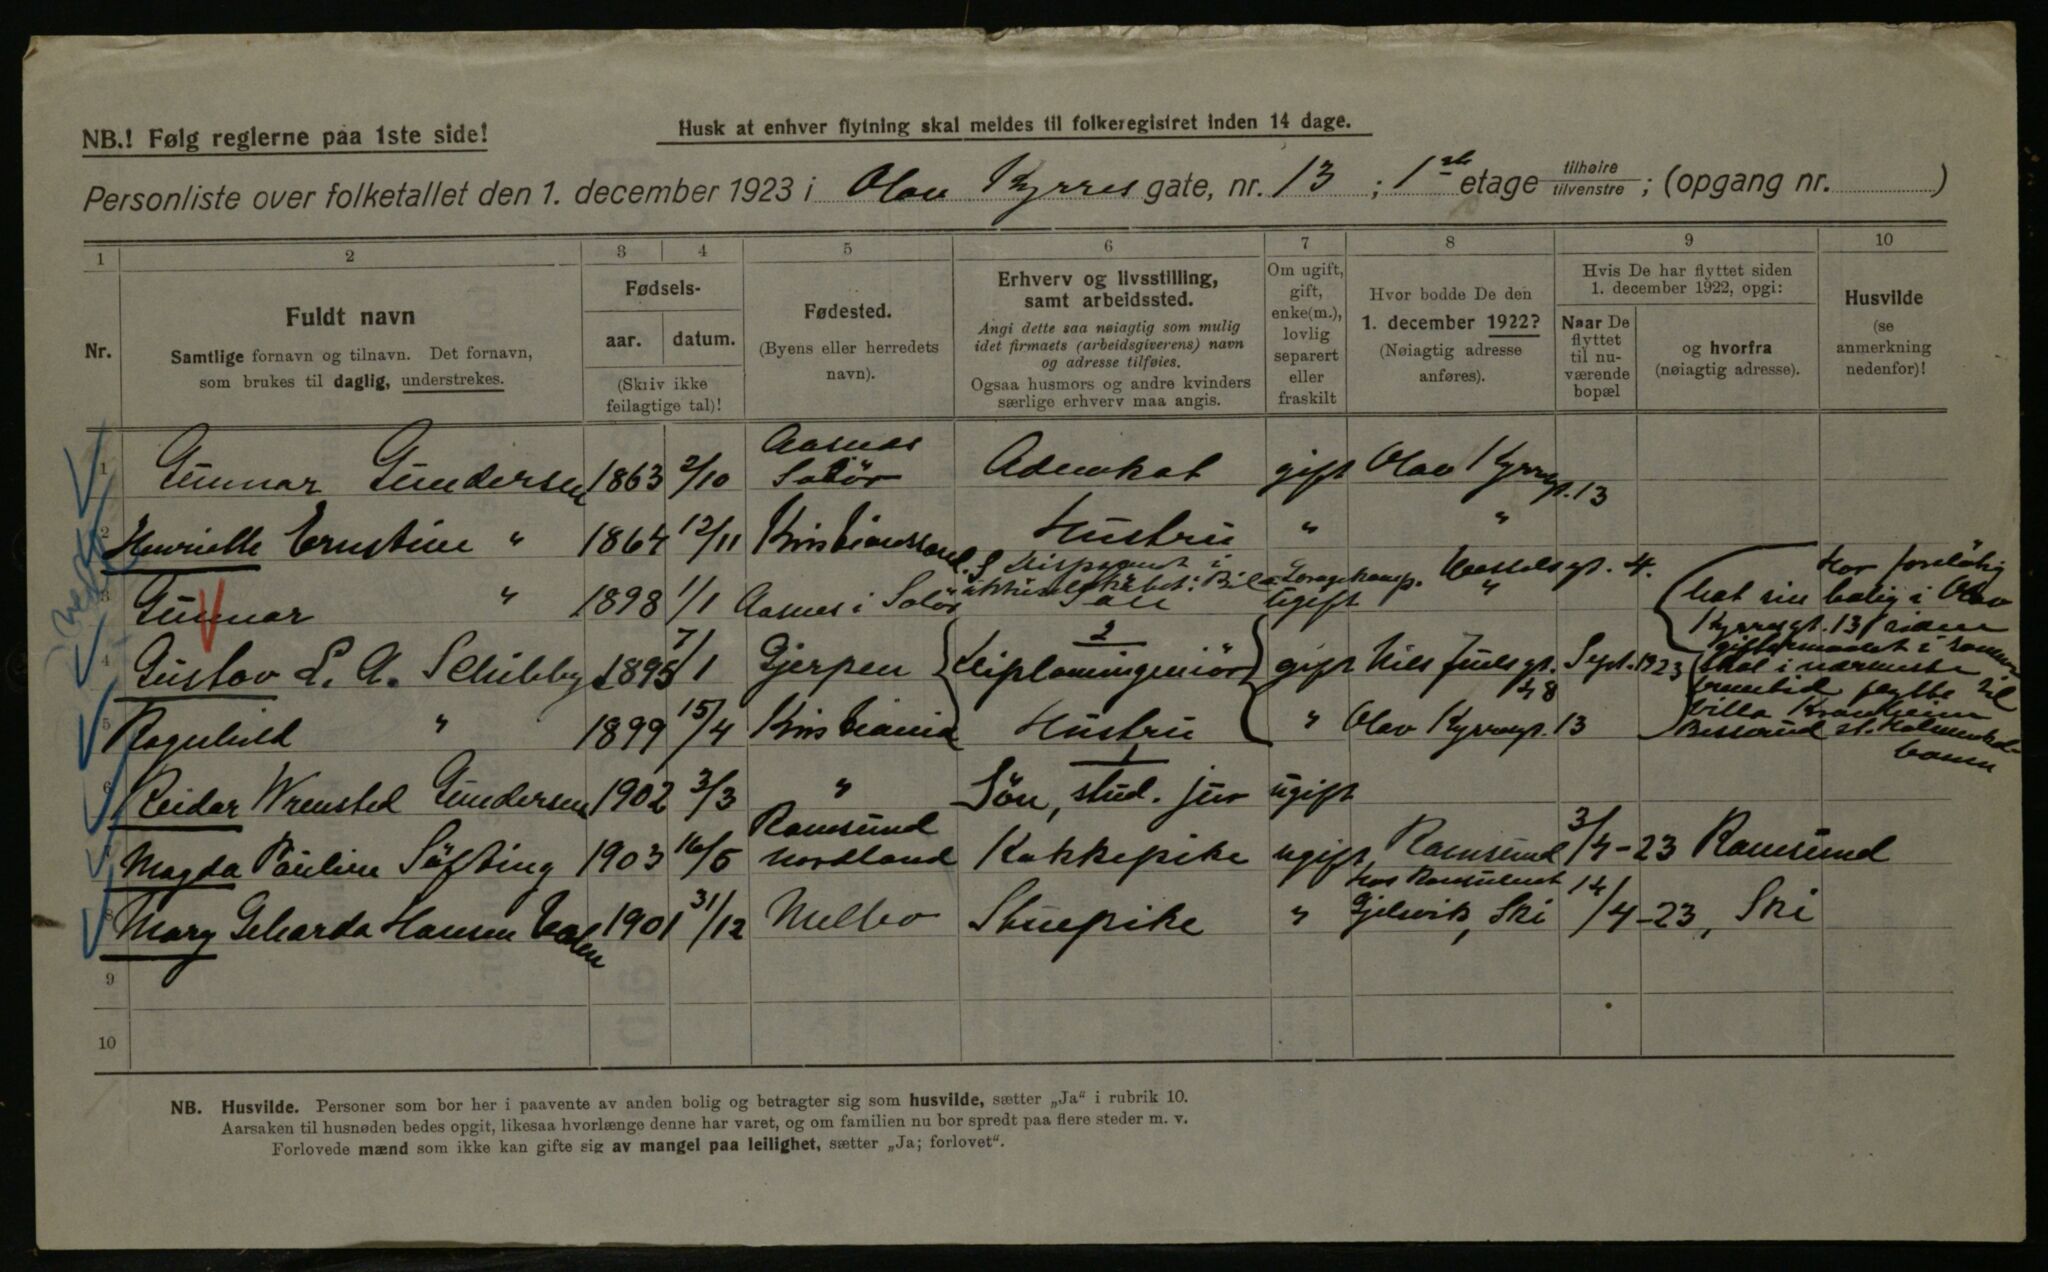 NB.! Følg reglerne paa 1ste side!
Husk at enhver flytning skal meldes til folkeregistret inden 14 dage.
Personliste over folketallet den 1. december 1923 i Olav Kyrres gate, nr. 13 ; 1ste etage tilhøire tilvenstre ; (opgang nr. )
1 2 3 4 5 6 7 8 9 10
Nr.
Fuldt navn
Samtlige fornavn og tilnavn. Det fornavn,
som brukes til daglig, understrekes.
Fødsels-
aar. datum.
(Skriv ikke
feilagtige tal)!
Fødested.
(Byens eller herredets
navn).
Erhverv og livsstilling,
samt arbeidssted.
Angi dette saa nøiagtig som mulig
idet firmaets (arbeidsgiverens) navn
og adresse tilføies.
Ogsaa husmors og andre kvinders
særlige erhverv maa angis.
Om ugift,
gift,
enke(m.),
lovlig
separert
eller
fraskilt
Hvor bodde De den
1. december 1922?
(Nøiagtig adresse
anføres).
Hvis De har flyttet siden
1. december 1922, opgi:
Naar De
flyttet
til nu-
værende
bopæl
og hvorfra
(nøiagtig adresse).
Husvilde
(se
anmerkning
nedenfor)!
1 Gunnar Gundersen 1863 2/10 Aasnes Solör Advokat gift Olav Kyrresgt. 13
2 Henriette Ernstine " 1864 12/11 Kristianssand. S Hustru " "
Disponent i aktieselskabet: Bil Vesselsgt. 4.
3 Gunnar " 1898 1/1 Aasnes i Solör Sön ugift "
4 Gustav L. A. Schibby 1895 7/1 Gjerpen Diplomingeniör gift Nils Juelsgt. 48 Sept. 1923
5 Ragnhild " 1899 15/4 Kristiania Hustru " Olav Kyrresgt. 13
Har foreløbig
hat sin bolig i Olav
Kyrresgt. 13 siden
giftermaalet i sommer
skal i nærmeste
fremtid flytte til
Villa
st. Holmenkol-
banen
6 Reidar Wrensted Gundersen 1902 3/3 " Sön, stud. jur ugift
7 Magda Pauline Söfting 1903 16/5 Ramsund Nordland Kokkepike ugift Ramsund 3/4-23 Ramsund
8 Mary Geharda Hansen 1901 31/12 Melbo Stuepike " Hos Konsulent Gjelsvik, Ski 14/4-23, Ski
9
10
NB. Husvilde. Personer som bor her i paavente av anden bolig og betragter sig som husvilde, sætter „Ja“ i rubrik 10.
Aarsaken til husnøden bedes opgit, likesaa hvorlænge denne har varet, og om familien nu bor spredt paa flere steder m. v.
Forlovede mænd som ikke kan gifte sig av mangel paa leilighet, sætter „Ja; forlovet“.